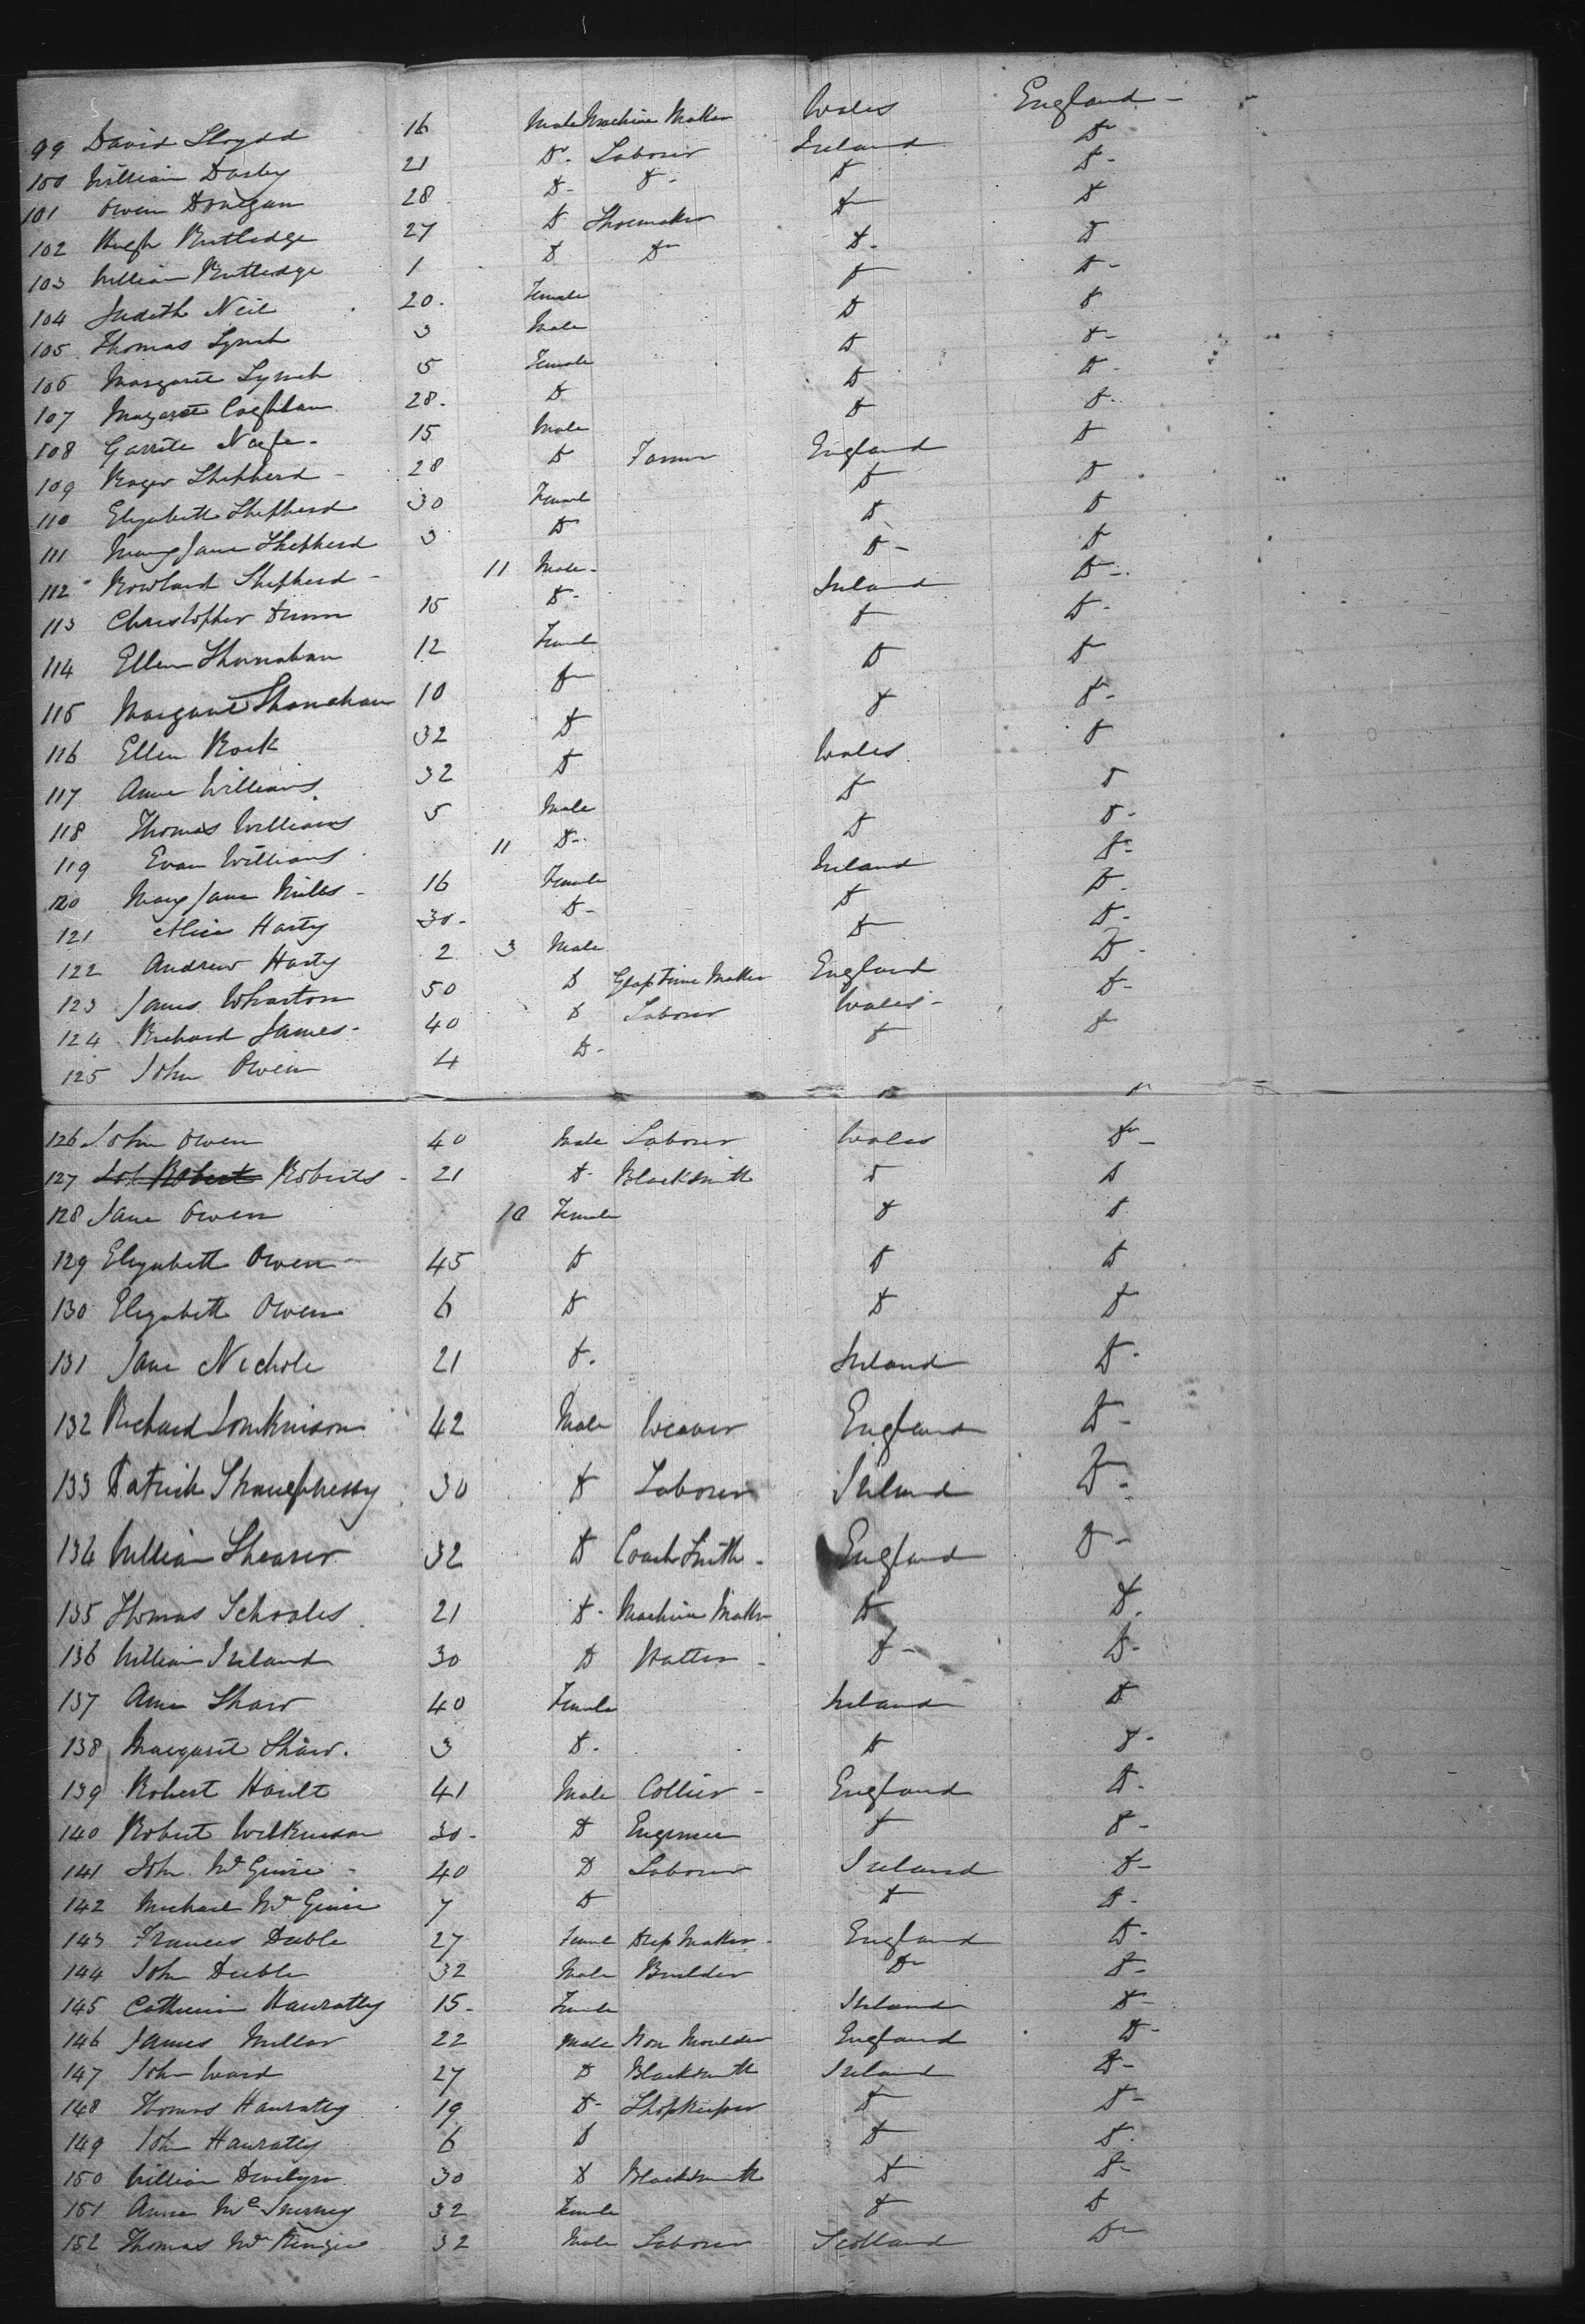 99 David Lloydd 16 Male Machine Maker Wales England -
100 William Darby 21 Do. Laborer Ireland Do
101 Owen Donegan 28 Do - Do - Do Do -
102 Hugh Rutledge 27 Do Shoemaker Do Do
103 William Rutledge 1 Do Do Do - Do
104 Judith Neil 20. Female Do Do -
105 Thomas Lynch 3 Male Do Do
106 Margaret Lynch 5 Female Do Do -
107 Magaret Coghlan 28. Do Do Do -
108 Garrite Nagle - 15 Male Do Do -
109 Roger Shepherd - 28 Do Farmer England Do
110 Elizabeth Shepherd 30 Female Do Do
111 Mary Jane Shepherd 3 Do Do Do
112 Rowland Shepherd - 11 Male - Do - Do
113 Christopher Dunn 15 Do - Ireland Do -
114 Ellen Shanahan 12 Female Do Do -
115 Margaret Shanahan 10 Do Do Do
116 Ellen Rock 32 Do Do Do -
117 Anne Williams 32 Do Wales Do
118 Thomas Williams 5 Male Do Do
119 Evan Williams 11 Do - Do Do -
120 Mary Jane Mills - 16 Female Ireland Do -
121 Alice Harty 30 - Do - Do Do -
122 Andrew Harty 2 3 Male Do Do -
123 James Wharton 50 Do Maker England Do -
124 Richard James - 40 Do Laborer Wales - Do -
125 John Owen 4 Do - Do Do
126 John Owen 40 Male Laborer Wales Do -
127 Roberts - 21 Do - Blacksmith Do Do
128 Jane Owen 10 Female Do Do
129 Elizabeth Owen 45 Do Do Do
130 Elizabeth Owen 6 Do Do Do
131 Jane Nichole 21 Do. Ireland Do -
132 Richard Tomkinson 42 Male Weaver England Do -
133 Patrick Shaughnessy 30 Do Laborer Ireland Do -
134 William Shearer 32 Do Coach Smith - England Do -
135 Thomas Schooles 21 Do - Machine Maker Do Do.
136 William Ireland 30 Do Hatter - Do - Do -
137 Anne Shaw 40 Female Ireland Do
138 Margaret Shaw. 3 Do - Do Do -
139 Robert Hault 41 Male Collier - England Do -
140 Robert Wilkinson 30 - Do Engineer Do Do -
141 John McGuire - 40 Do Laborer Ireland Do -
142 Michael McGuire 7 Do Do Do -
143 Frances Deeble 27 Female Dress Maker - England Do -
144 John Deeble 32 Male Builder Do Do -
145 Catherine Hanratty 15 - Female Ireland Do -
146 James Millar 22 Male Iron Moulder England Do -
147 John Ward 27 Do Blacksmith Ireland Do -
148 Thomas Hanratty 19 Do - Shopkeeper Do Do -
149 John Hanratty 6 Do Do Do
150 William Devlyn 30 Do Blacksmith Do Do -
151 Anne McInerney 32 Female Do Do
152 Thomas McKenzie 32 Male Laborer Scotland Do